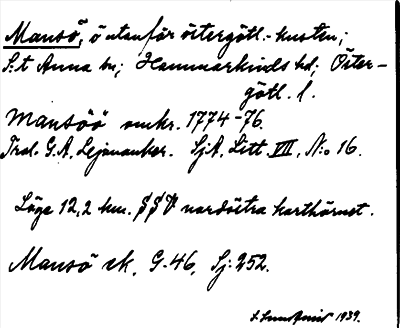 Mansö, ö utanför östergötl.-kusten;
S:t Anna sn; Hammarkinds hd; Öster-
götl. l.
Mansöö omkr. 1774-76.
Trol. G. A. Lejonancker. SjA. Litt. VIII, N:o 16.
Läge 12,2 km. SSV nordöstra karthörnet.
Mansö ek. G. 46. Sj: 252.
1939.